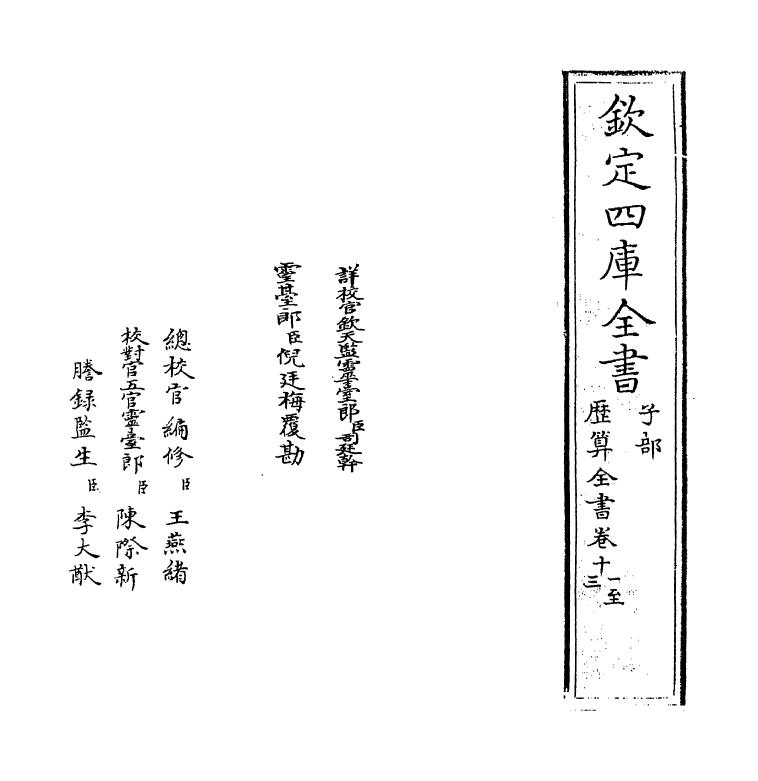 欽定四庫全書
子部
歴算全書卷十一至三
詳校官欽天監靈臺郎臣司廷幹
靈臺郎臣倪廷梅覆勘
總校官編修臣王燕緒
校對官五官靈臺郎臣陳際新
謄録監生臣李大猷